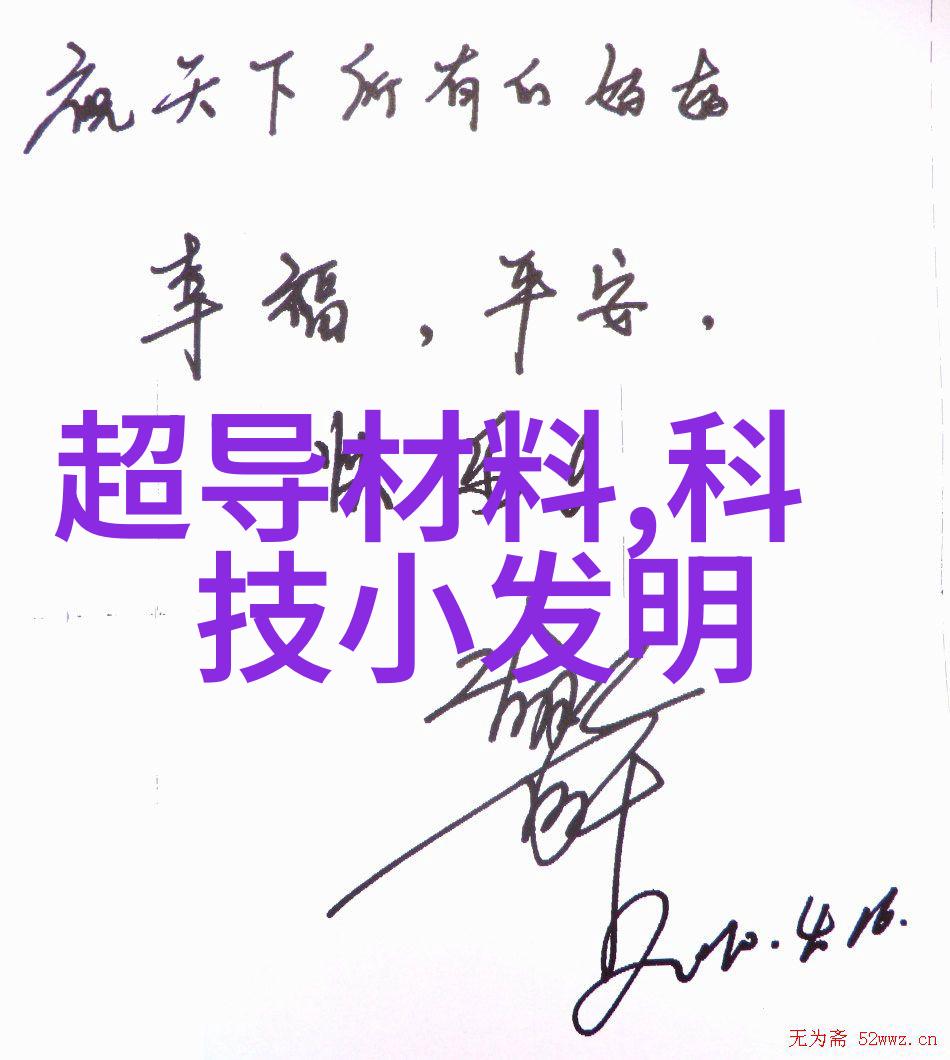 祝天下所有的妈妈
幸福，平安，
快乐！
超导材料,科
技小发明
2010.4.16.
无为斋 52wwz.cn